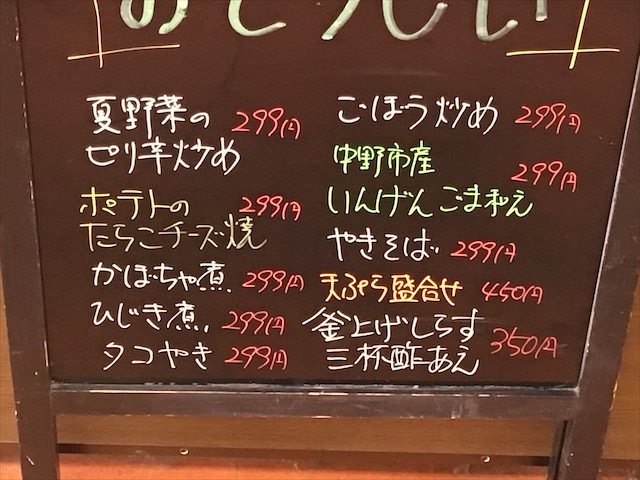 夏野菜の
ピリ辛炒め 299円
ポテトの
たらこチーズ焼 299円
かぼちゃ煮 299円
ひじき煮 299円
タコやき 299円
ごぼう炒め 299円
中野市産
いんげんごま和え 299円
やきそば 299円
天ぷら盛合せ 450円
釜上げしらす
三杯酢あえ 350円